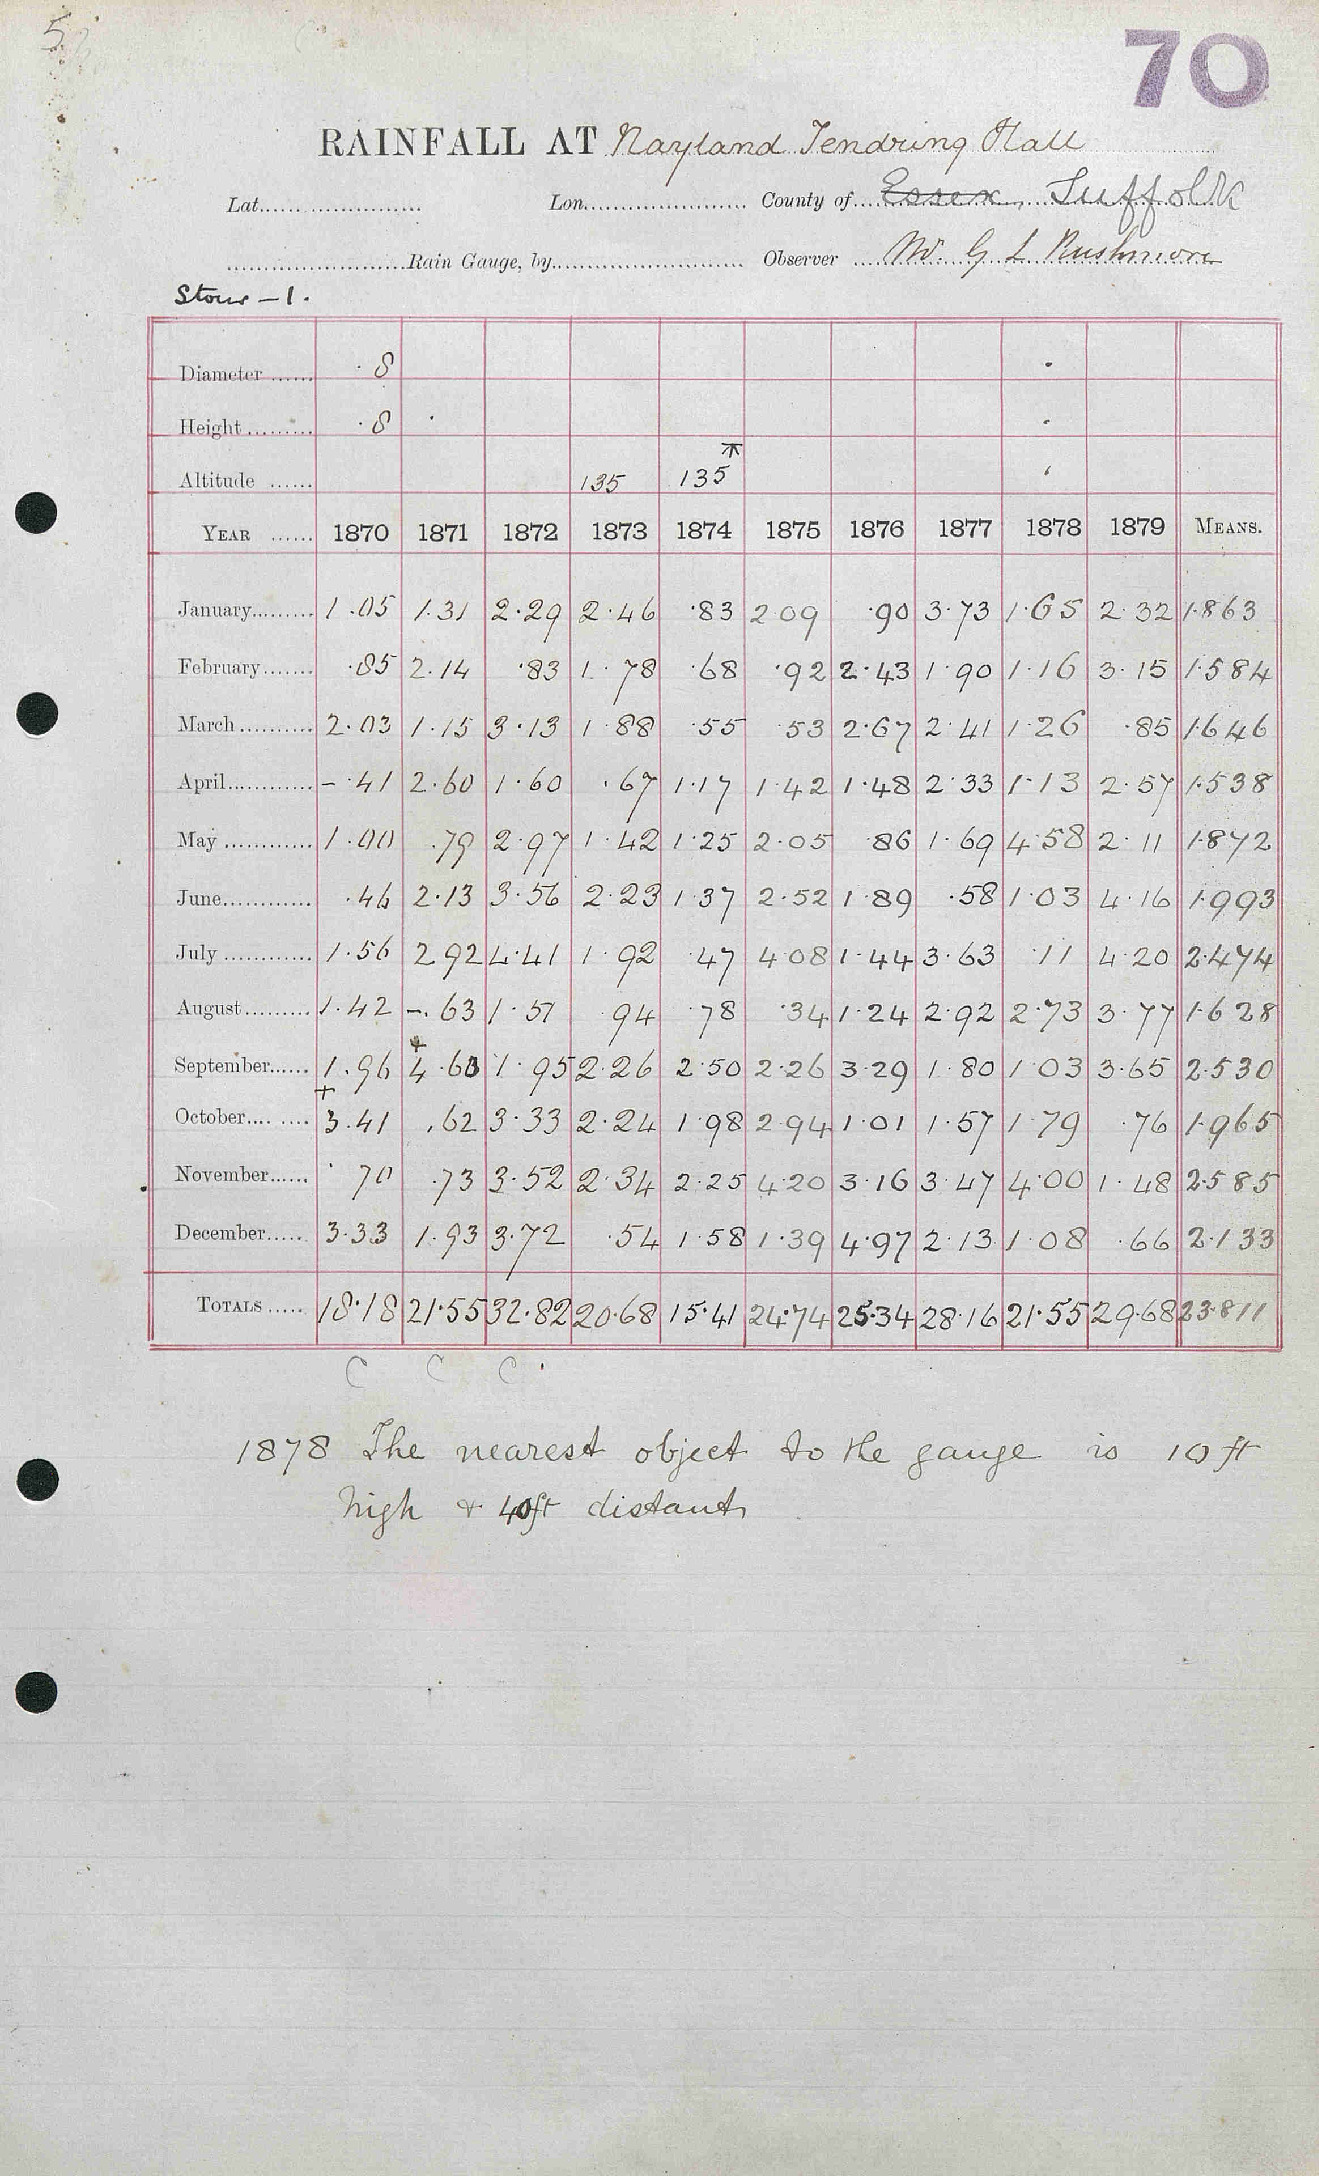 5
70
RAINFALL AT Nayland Tendring Hall
Lat. Lon. County of Essex, Suffolk
Rain Gauge, by Observer Mr. G L Rushmore
Stour - 1.
Diameter ...... ·8
Height ......... ·8
Altitude ...... 135 135
YEAR ...... 1870 1871 1872 1873 1874 1875 1876 1877 1878 1879 MEANS.
January......... 1.05 1.31 2.29 2.46 ·83 2.09 ·90 3.73 1.65 2.32 1.863
February....... ·85 2.14 ·83 1.78 ·68 ·92 2.43 1.90 1.16 3.15 1.584
March.......... 2.03 1.15 3.13 1.88 ·55 53 2.67 2.41 1.26 ·85 1.646
April............ - ·41 2.60 1.60 ·67 1.17 1.42 1.48 2.33 1.13 2.57 1.538
May ............ 1.00 .79 2.97 1.42 1.25 2.05 86 1.69 4.58 2.11 1.872
June............ ·46 2.13 3.56 2.23 1.37 2.52 1.89 ·58 1.03 4.16 1.993
July ............ 1.56 2.92 4.41 1.92 47 4.08 1.44 3.63 11 4.20 2.474
August......... 1.42 -.63 1.51 94 78 ·34 1.24 2.92 2.73 3.77 1.628
September...... 1.96 + 4.60 1.95 2.26 2.50 2.26 3.29 1.80 1.03 3.65 2.530
October.... .... + 3.41 .62 3.33 2.24 1.98 2.94 1.01 1.57 1.79 ·76 1.965
November...... ·70 .73 3.52 2.34 2.25 4.20 3.16 3.47 4.00 1.48 2.585
December..... 3.33 1.93 3.72 ·54 1.58 1.39 4.97 2.13 1.08 ·66 2.133
TOTALS ..... 18.18 21.55 32.82 20.68 15.41 24.74 25.34 28.16 21.55 29.68 23.811
C C C
1878 The nearest object to the gauge is 10 ft
high & 40ft distant